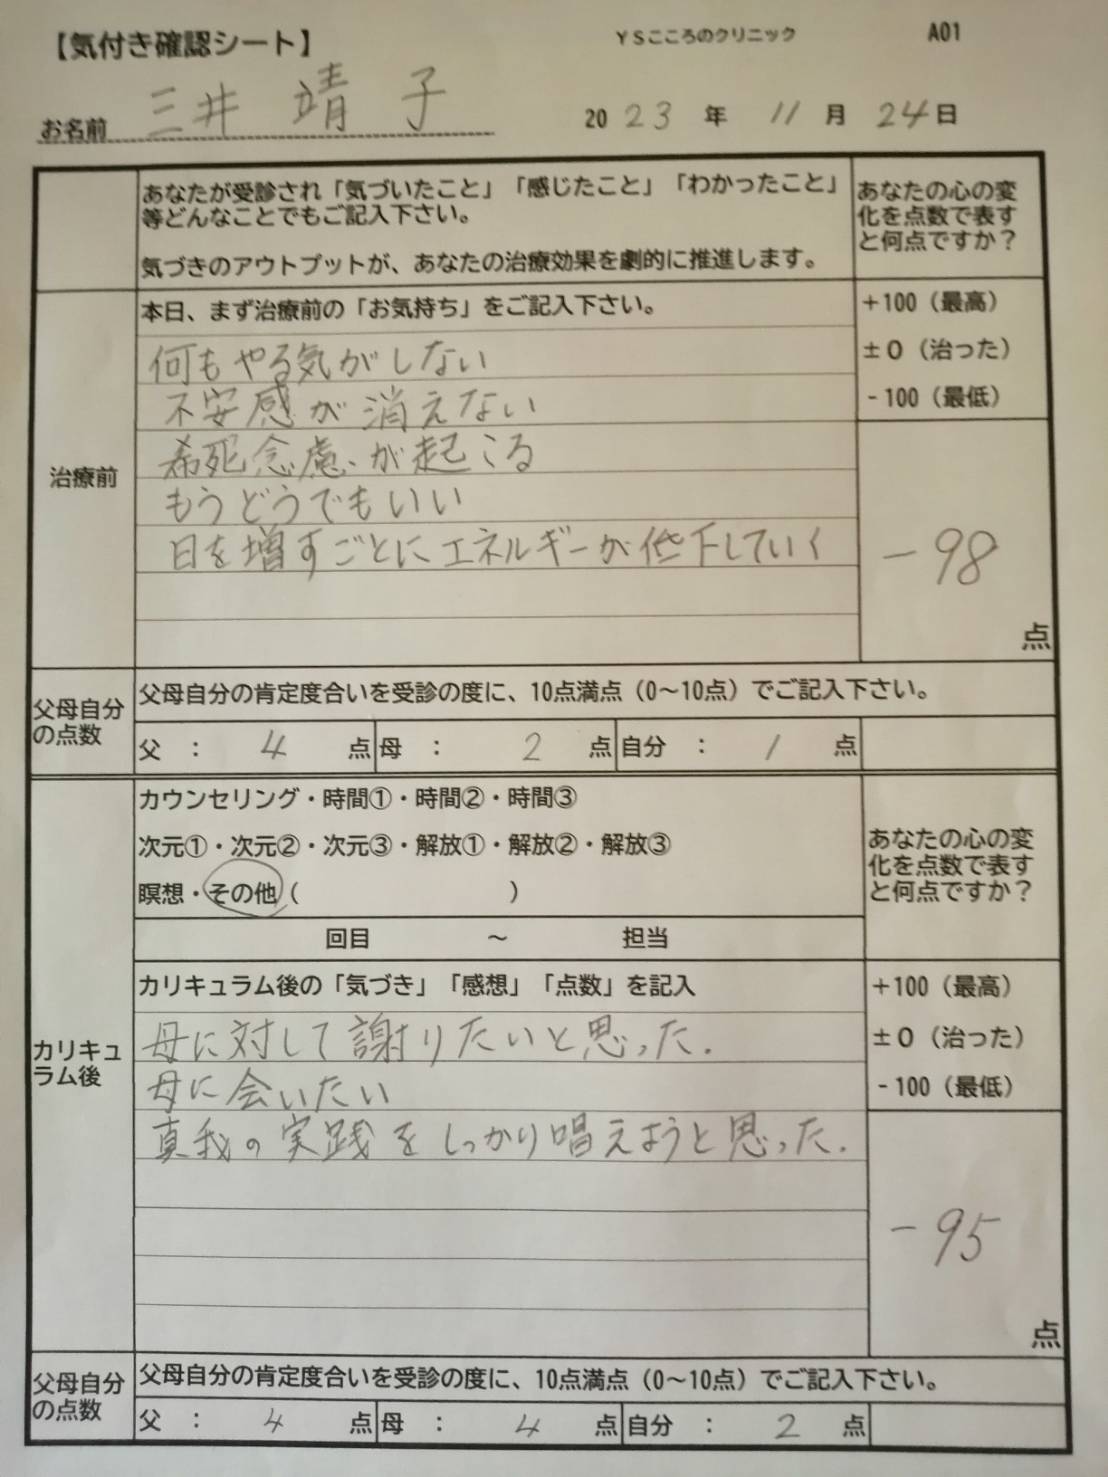 【気付き確認シート】
YSこころのクリニック
A01
お名前 三井 靖子
2023年 11月 24日
あなたが受診され「気づいたこと」「感じたこと」「わかったこと」
等どんなことでもご記入下さい。
気づきのアウトプットが、あなたの治療効果を劇的に推進します。
あなたの心の変
化を点数で表す
と何点ですか？
治療前
本日、まず治療前の「お気持ち」をご記入下さい。
何もやる気がしない
不安感が消えない
希死念慮が起こる
もうどうでもいい
日を増すごとにエネルギーが低下していく
+100（最高）
±0（治った）
-100（最低）
-98
点
父母自分
の点数
父母自分の肯定度合いを受診の度に、10点満点（0～10点）でご記入下さい。
父 ： 4 点 母 ： 2 点 自分 ： 1 点
カリキュ
ラム後
カウンセリング・時間①・時間②・時間③
次元①・次元②・次元③・解放①・解放②・解放③
瞑想・その他（ ）
回目 ～ 担当
あなたの心の変
化を点数で表す
と何点ですか？
カリキュラム後の「気づき」「感想」「点数」を記入
母に対して謝りたいと思った.
母に会いたい
真我の実践をしっかり唱えようと思った.
+100（最高）
±0（治った）
-100（最低）
-95
点
父母自分
の点数
父母自分の肯定度合いを受診の度に、10点満点（0～10点）でご記入下さい。
父 ： 4 点 母 ： 4 点 自分 ： 2 点